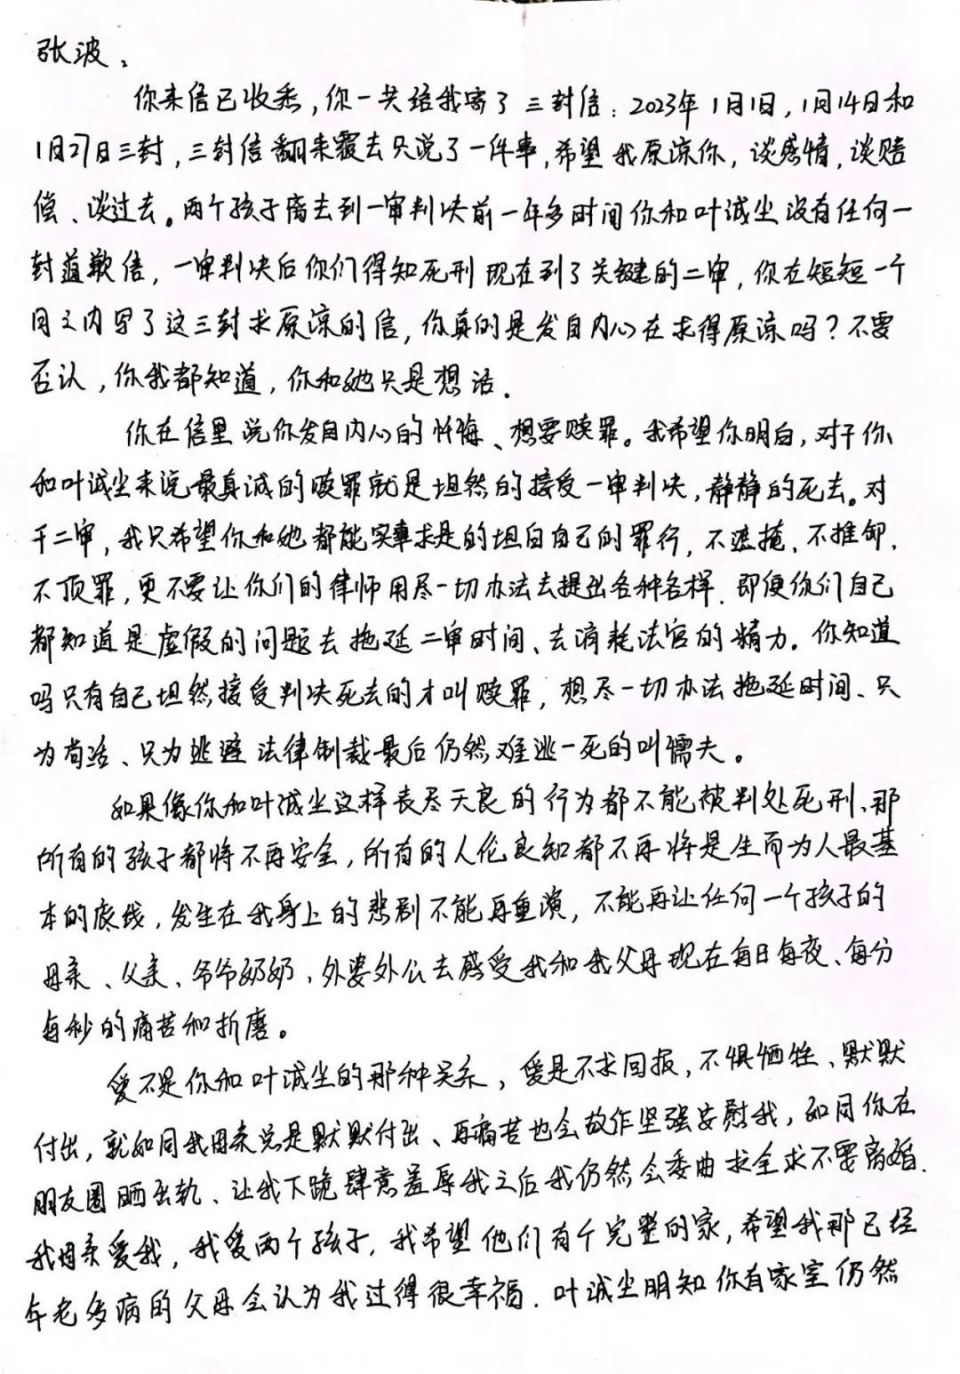 张波：
你来信已收悉，你一共给我寄了三封信：2023年1月1日，1月14日和
1月27日三封，三封信翻来覆去只说了一件事，希望我原谅你，谈感情，谈赔
偿、谈过去。两个孩子离去到一审判决前一年多时间你和叶诚尘没有任何一
封道歉信，一审判决后你们得知死刑现在到了关键的二审，你在短短一个
月之内写了这三封求原谅的信，你真的是发自内心在求得原谅吗？不要
否认，你我都知道，你和她只是想活．
你在信里说你发自内心的忏悔、想要赎罪。我希望你明白，对于你
和叶诚尘来说最真诚的赎罪就是坦然的接受一审判决，静静的死去。对
于二审，我只希望你和她都能实事求是的坦白自己的罪行，不遮掩．不推卸．
不顶罪，更不要让你们的律师用尽一切办法去提出各种各样．即便你们自己
都知道是虚假的问题去拖延二审时间、去消耗法官的精力．你知道
吗只有自己坦然接受判决死去的才叫赎罪，想尽一切办法拖延时间、只
为苟活、只为逃避法律制裁最后仍然难逃一死的叫懦夫。
如果像你和叶诚尘这样丧尽天良的行为都不能被判处死刑、那
所有的孩子都将不再安全，所有的人伦良知都不再将是生而为人最基
本的底线，发生在我身上的悲剧不能再重演，不能再让任何一个孩子的
母亲、父亲、爷爷奶奶、外婆外公去感受我和我父母现在每日每夜、每分
每秒的痛苦和折磨。
爱不是你和叶诚尘的那种关系，爱是不求回报，不惧牺牲、默默
付出，就如同我母亲总是默默付出、再痛苦也会故作坚强安慰我，如同你在
朋友圈晒出轨、让我下跪肆意羞辱我之后我仍然会委曲求全求不要离婚．
我母亲爱我，我爱两个孩子，我希望他们有个完整的家，希望我那已经
年老多病的父母会认为我过得很幸福．叶诚尘明知你有家室仍然